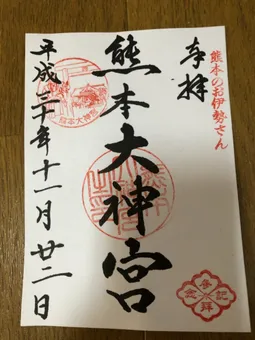 熊本のお伊勢さん
奉拝
熊本大神宮
平成三十年十一月廿二日
熊本大神宮
参拝
記念